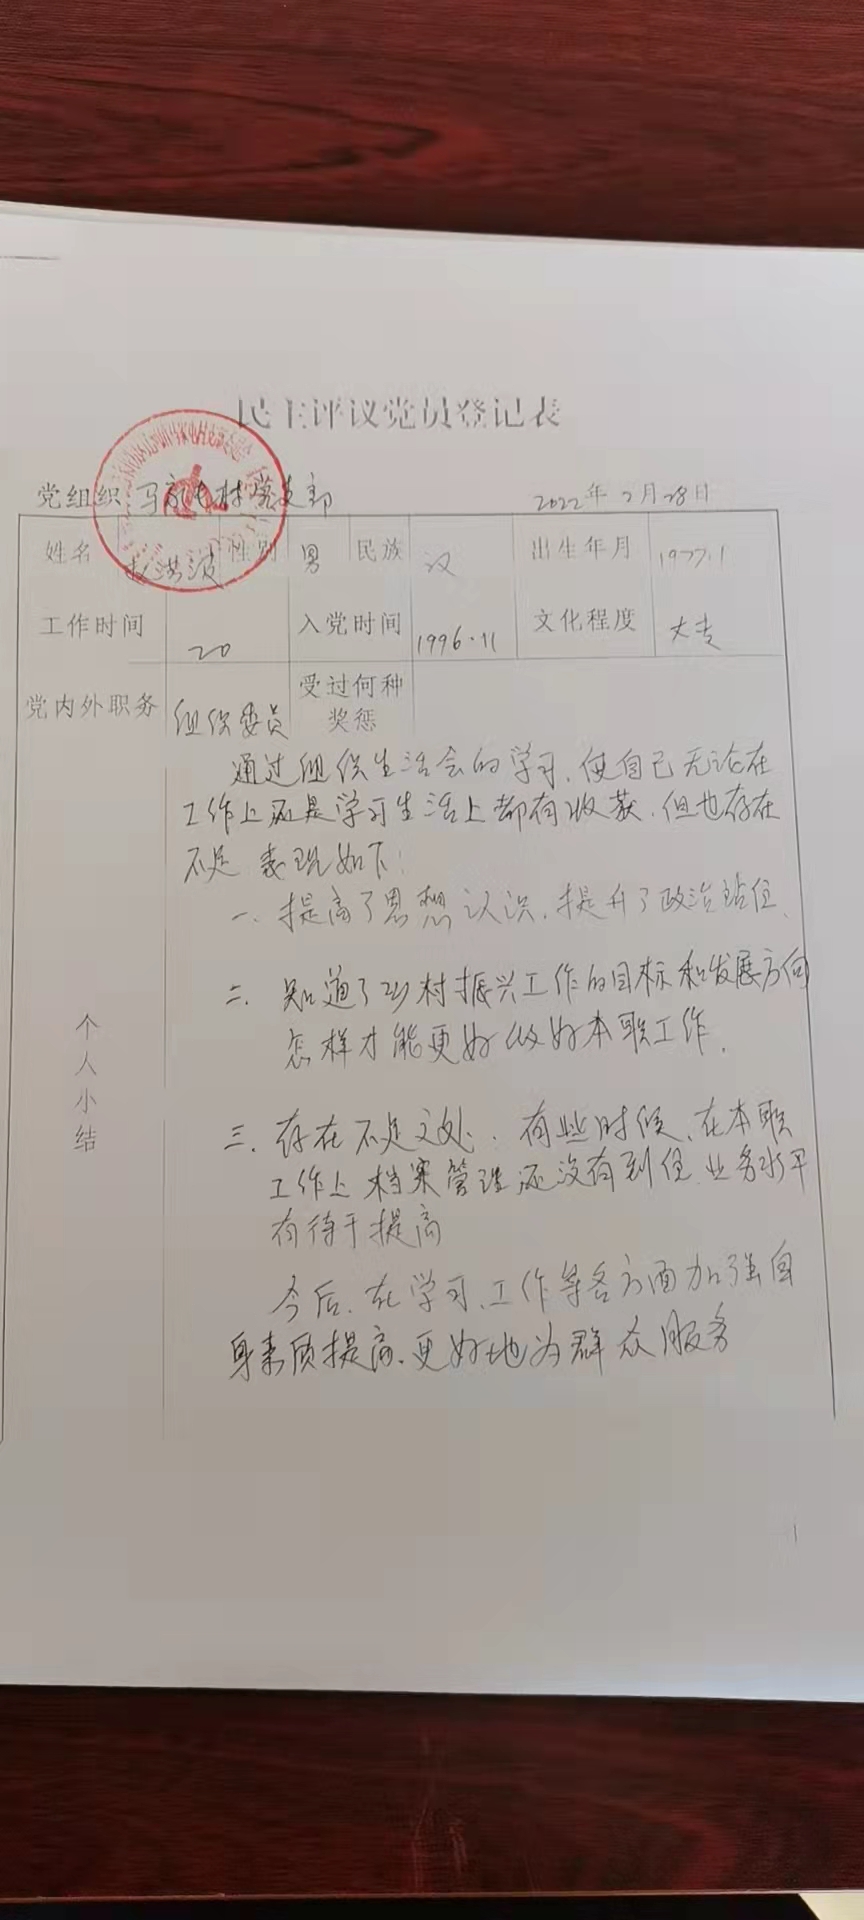 民主评议党员登记表
党组织 马家屯村党支部 2022年2月28日
姓名 洪波 性别 男 民族 汉 出生年月 1977.1
工作时间 20 入党时间 1996.11 文化程度 大专
党内外职务 组织委员 受过何种奖惩
个人小结
通过组织生活会的学习,使自己无论在
工作上还是学习生活上都有收获.但也存在
不足 表现如下:
一、提高了思想认识,提升了政治站位、
二、知道了乡村振兴工作的目标和发展方向
怎样才能更好做好本职工作.
三、存在不足之处.有些时候、在本职
工作上 档案管理还没有到位、业务水平
有待于提高
今后、在学习、工作等各方面加强自
身素质提高、更好地为群众服务
1